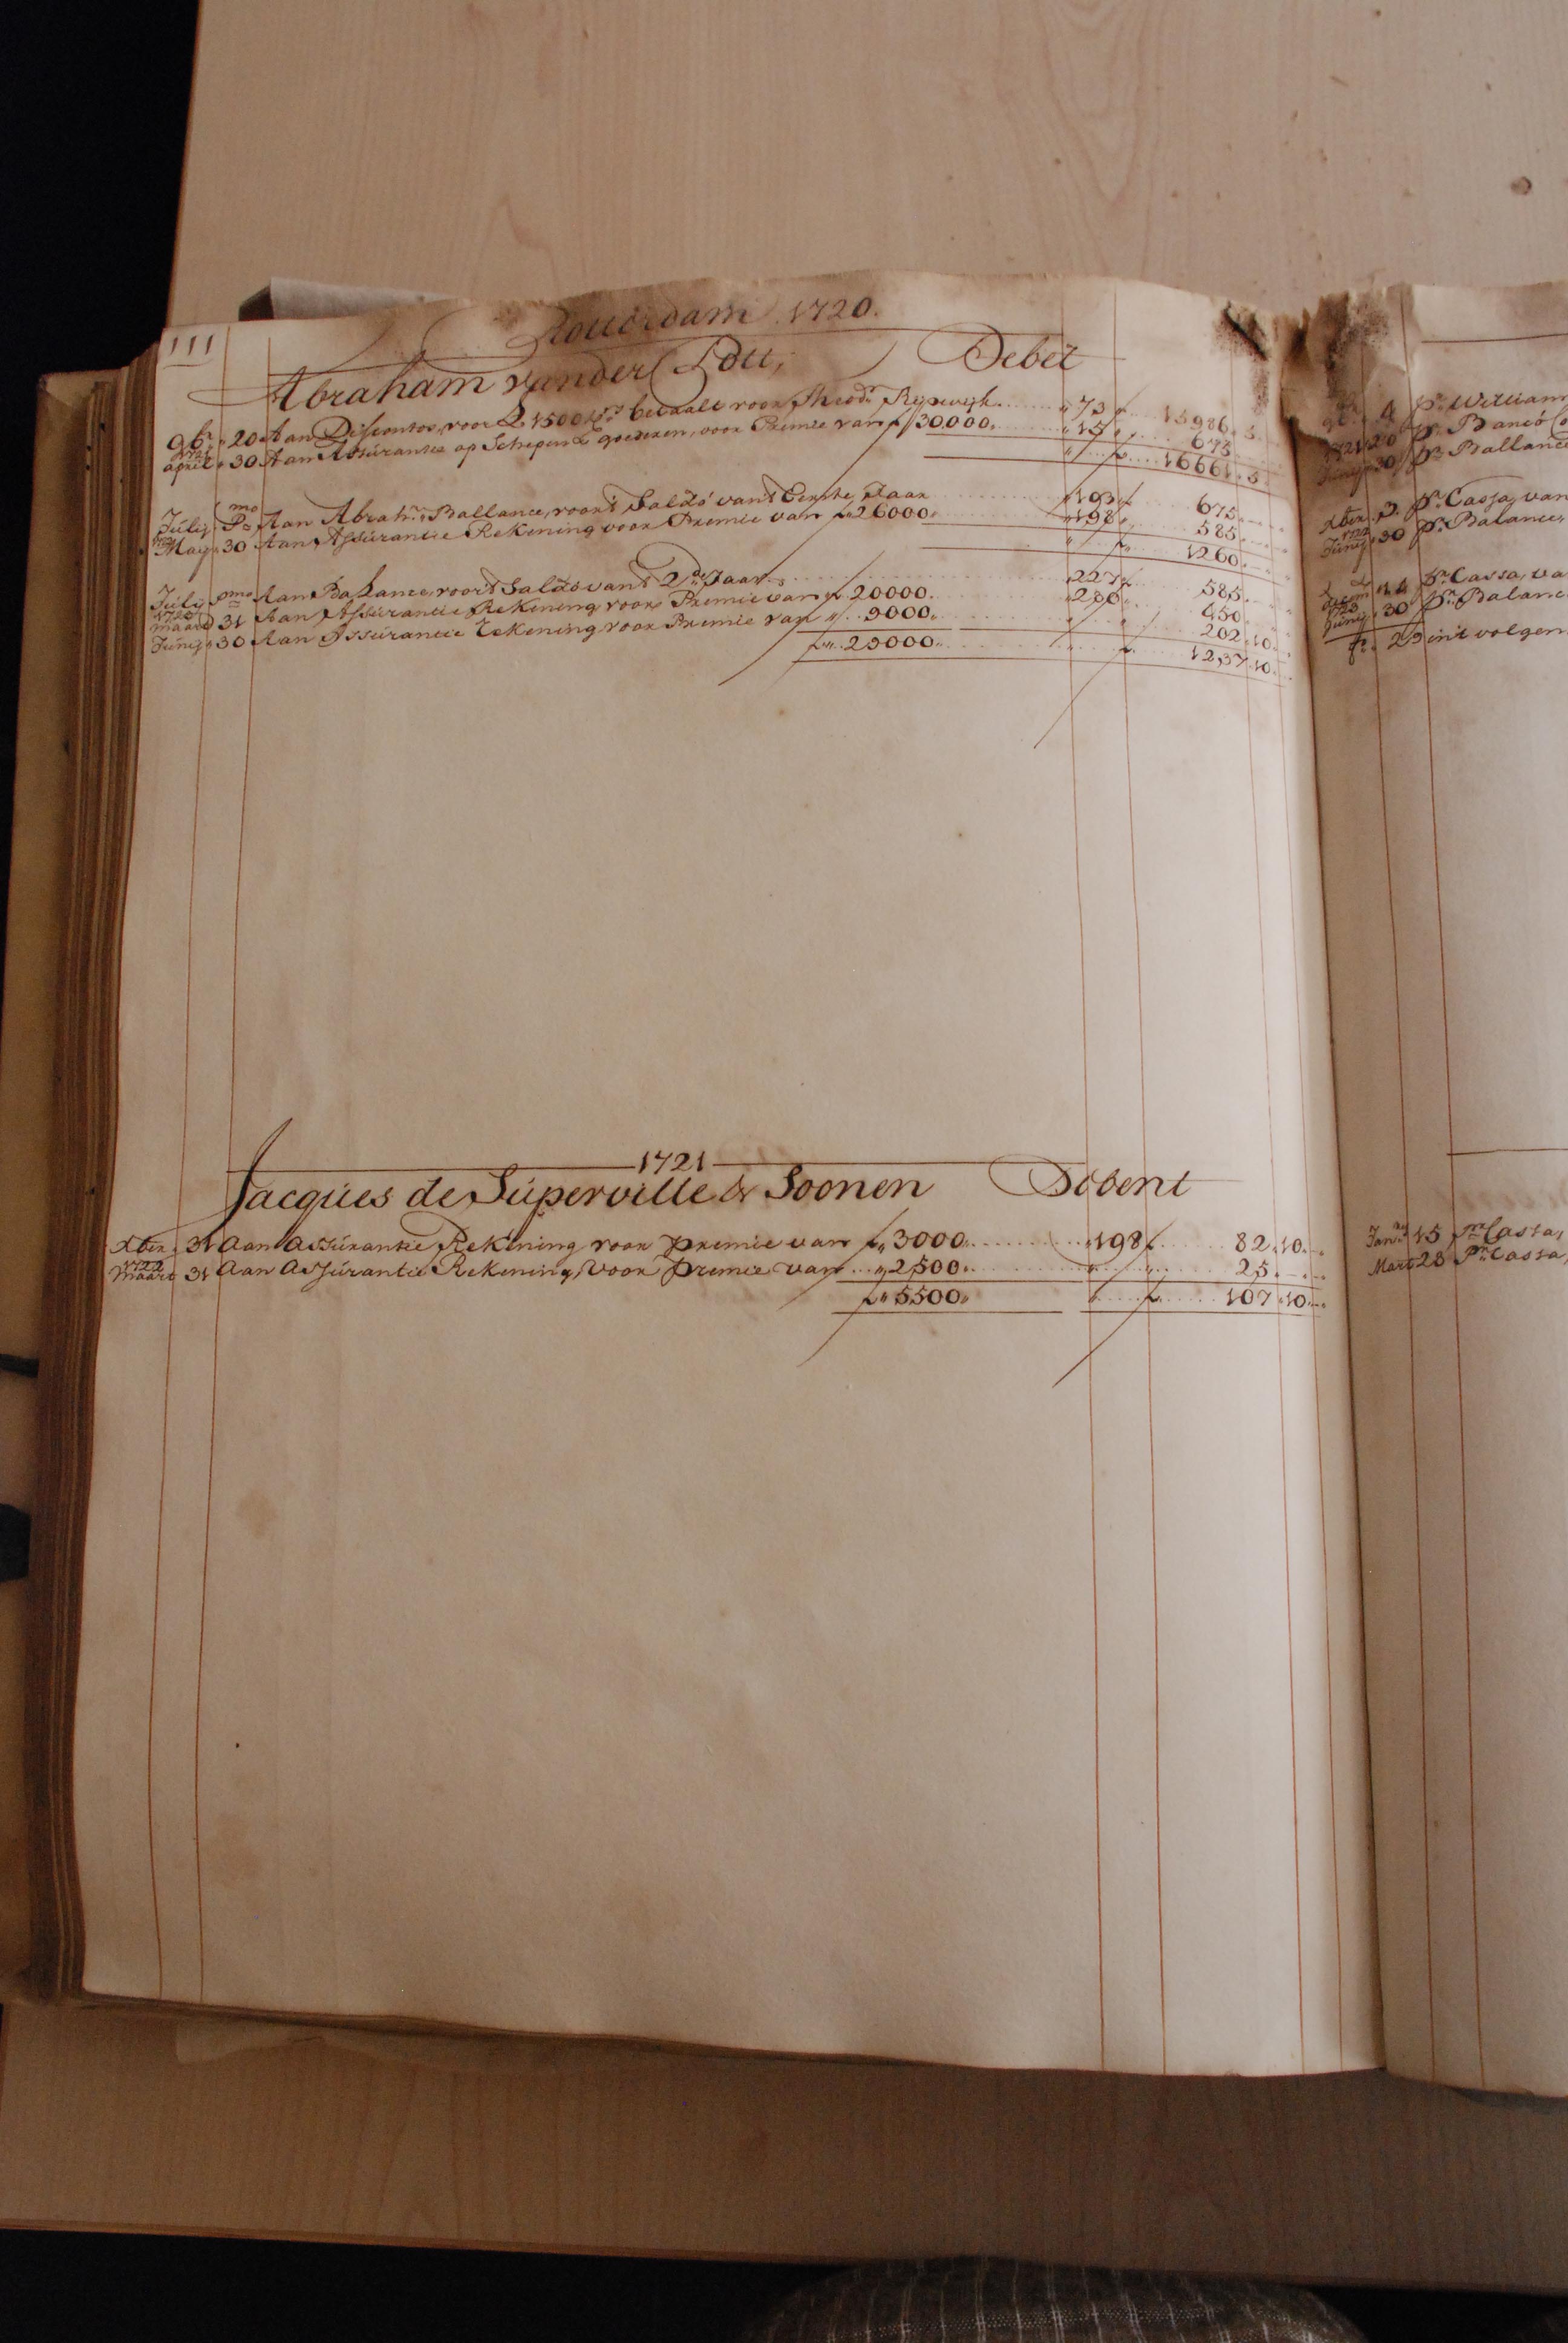 111
Rotterdam 1720.
Abraham vander Pott, Debet
9br. 20 Aan Disconto, voor £ 1500 betaalt voor Theodr. Rijswyk 73 f 15986. 5.
1721 april 30 Aan Assurantie op Schepen & goederen, voor Premie van f 30.000. 15 675
f 16661. 5.
July Pmo Aan Abrah: Ballance, voor't Saldo van't Eerste Jaar 193 f 675
1722 May 30 Aan Assurantie Rekening voor Premie van f 26000. 198 585
1260.
July pmo Aan Ballance, voor't Saldo van't 2de Jaar 227 f 585.
1723 maart 31 Aan Assurantie Rekening voor Premie van f 20000. 280 450
Junij 30 Aan Assurantie Rekening voor Premie van 9000. 202.10.
f 29000. f 1237.10.
1721
Jacques de Superville & Soonen Debent
Xber. 31 Aan Assurantie Rekening voor Premie van f 3000. 198 f 82.10.
1722 maart 31 Aan Assurantie Rekening, voor Premie van 2500. 25.
f 5500. f 107.10.
4 Pr. William
1721 20 Pr. Banco
Junij 30 Pr. Ballance
Xber. 2 Pr. Cassa, van
1722 Junij 30 Pr. Balance,
Decem 14 Pr. Cassa, va
1723 Junij 30 Pr. Balanc
in't volgen
Jan. 15 Pr. Cassa,
Mart 28 Pr. Cassa,